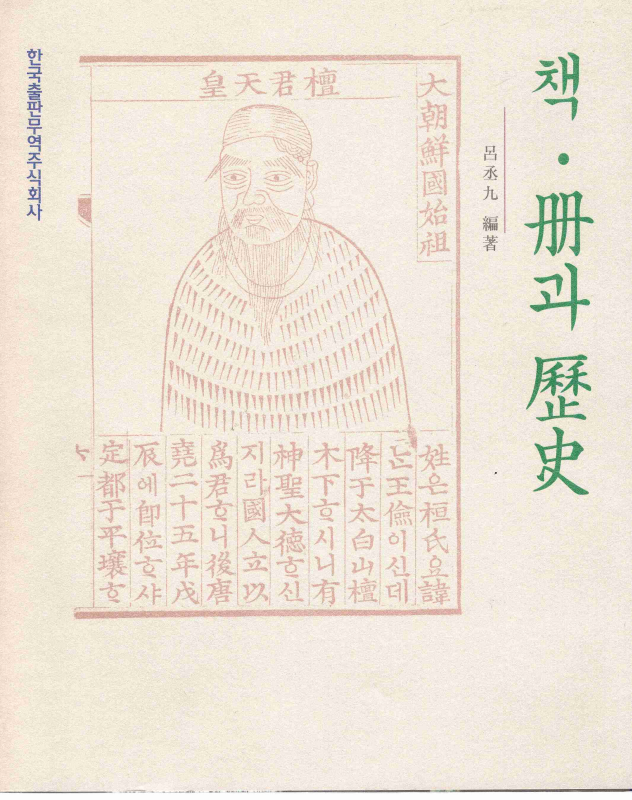 책·册과 歷史
呂丞九 編著
한국출판무역주식회사
大朝鮮國始祖
檀君天皇
姓은桓氏요諱
ᄂᆞᆫ王儉이신데
降于太白山檀
木下ᄒᆞ시니有
神聖大德ᄒᆞ신
지라國人立以
爲君ᄒᆞ니後唐
堯二十五年戊
辰에卽位ᄒᆞ샤
定都于平壤ᄒᆞ